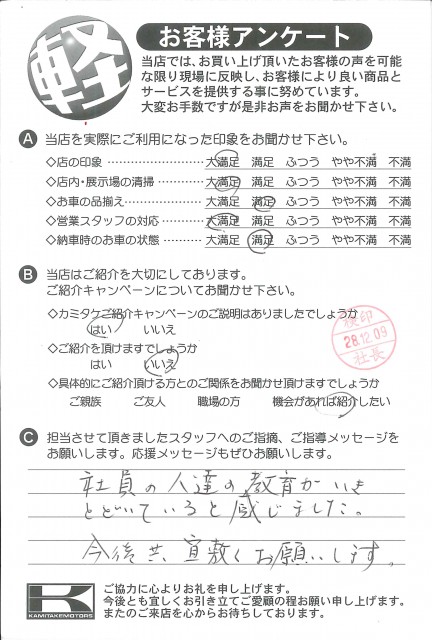 軽
お客様アンケート
当店では、お買い上げ頂いたお客様の声を可能
な限り現場に反映し、お客様により良い商品と
サービスを提供する事に努めています。
大変お手数ですが是非お声をお聞かせ下さい。
A 当店を実際にご利用になった印象をお聞かせ下さい。
◇店の印象 …………………… 大満足 満足 ふつう やや不満 不満
◇店内・展示場の清掃 ………… 大満足 満足 ふつう やや不満 不満
◇お車の品揃え ……………… 大満足 満足 ふつう やや不満 不満
◇営業スタッフの対応 ………… 大満足 満足 ふつう やや不満 不満
◇納車時のお車の状態 ………… 大満足 満足 ふつう やや不満 不満
B 当店はご紹介を大切にしております。
ご紹介キャンペーンについてお聞かせ下さい。
◇カミタケご紹介キャンペーンのご説明はありましたでしょうか
はい いいえ
◇ご紹介を頂けますでしょうか
はい いいえ
◇具体的にご紹介頂ける方とのご関係をお聞かせ頂けますでしょうか
ご親族 ご友人 職場の方 機会があれば紹介したい
検印
28.12.09
社長
C 担当させて頂きましたスタッフへのご指摘、ご指導メッセージを
お願いします。応援メッセージもぜひお願いします。
社員の人達の教育がいき
とどいていると感じました。
今後共、宜敷くお願いします。
K
KAMITAKEMOTORS
ご協力に心よりお礼を申し上げます。
今後とも宜しくお引き立てご愛顧の程お願い申し上げます。
またのご来店を心からお待ちしております。